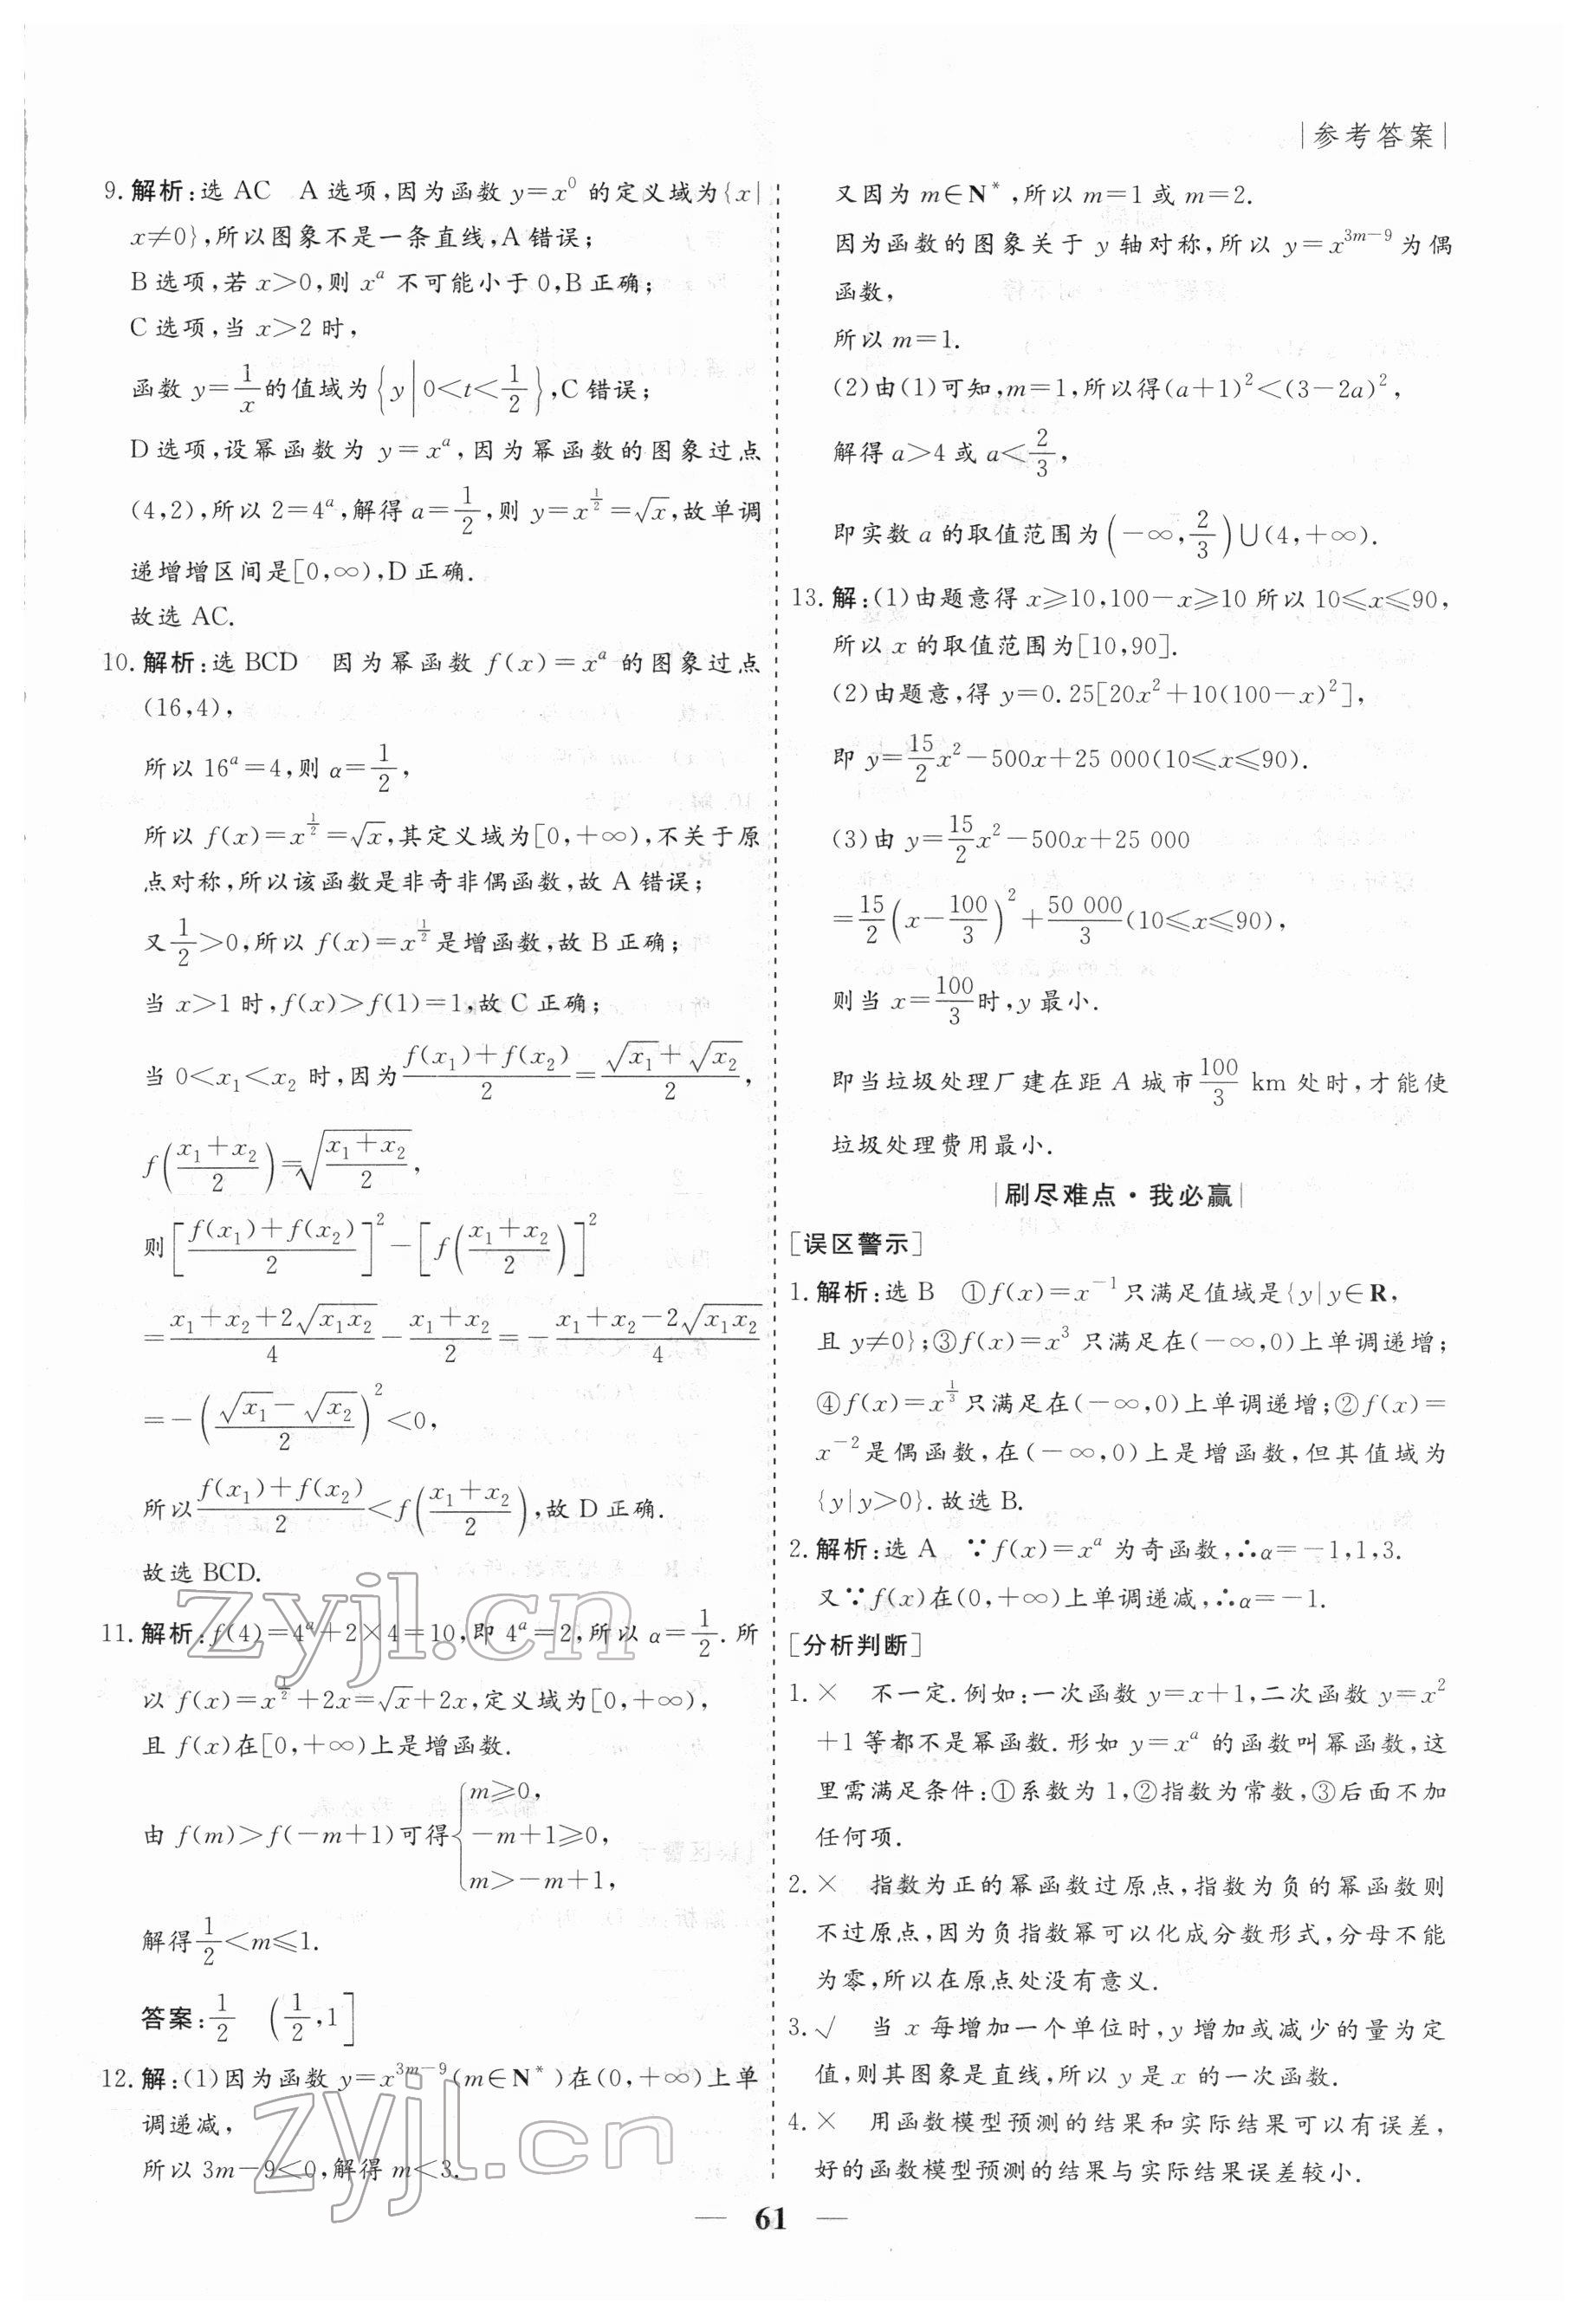 |参考答案|
9. 解析:选 AC　A 选项,因为函数 y=x⁰ 的定义域为{x|
x≠0},所以图象不是一条直线,A 错误;
B 选项,若 x>0,则 xᵅ 不可能小于 0,B 正确;
C 选项,当 x>2 时,
函数 y=1/x 的值域为{y|0<t<1/2},C 错误;
D 选项,设幂函数为 y=xᵅ,因为幂函数的图象过点
(4,2),所以 2=4ᵅ,解得 a=1/2,则 y=x^(1/2)=√x,故单调
递增增区间是[0,∞),D 正确.
故选 AC.
10. 解析:选 BCD　因为幂函数 f(x)=xᵅ 的图象过点
(16,4),
所以 16ᵅ=4,则 α=1/2,
所以 f(x)=x^(1/2)=√x,其定义域为[0,+∞),不关于原
点对称,所以该函数是非奇非偶函数,故 A 错误;
又 1/2>0,所以 f(x)=x^(1/2) 是增函数,故 B 正确;
当 x>1 时,f(x)>f(1)=1,故 C 正确;
当 0<x₁<x₂ 时,因为 (f(x₁)+f(x₂))/2=(√x₁+√x₂)/2,
f((x₁+x₂)/2)=√((x₁+x₂)/2),
则[(f(x₁)+f(x₂))/2]²-[f((x₁+x₂)/2)]²
=(x₁+x₂+2√(x₁x₂))/4-(x₁+x₂)/2=-(x₁+x₂-2√(x₁x₂))/4
=-((√x₁-√x₂)/2)²<0,
所以 (f(x₁)+f(x₂))/2<f((x₁+x₂)/2),故 D 正确.
故选 BCD.
11. 解析:f(4)=4ᵅ+2×4=10,即 4ᵅ=2,所以 α=1/2.所
以 f(x)=x^(1/2)+2x=√x+2x,定义域为[0,+∞),
且 f(x)在[0,+∞)上是增函数.
由 f(m)>f(-m+1)可得{m≥0,
-m+1≥0,
m>-m+1,
解得 1/2<m≤1.
答案:1/2　(1/2,1]
12. 解:(1)因为函数 y=x^(3m-9)(m∈N*)在(0,+∞)上单
调递减,
所以 3m-9<0,解得 m<3.
又因为 m∈N*,所以 m=1 或 m=2.
因为函数的图象关于 y 轴对称,所以 y=x^(3m-9) 为偶
函数,
所以 m=1.
(2)由(1)可知,m=1,所以得(a+1)²<(3-2a)²,
解得 a>4 或 a<2/3,
即实数 a 的取值范围为(-∞,2/3)∪(4,+∞).
13. 解:(1)由题意得 x≥10,100-x≥10 所以 10≤x≤90,
所以 x 的取值范围为[10,90].
(2)由题意,得 y=0.25[20x²+10(100-x)²],
即 y=15/2x²-500x+25 000(10≤x≤90).
(3)由 y=15/2x²-500x+25 000
=15/2(x-100/3)²+50 000/3(10≤x≤90),
则当 x=100/3时,y 最小.
即当垃圾处理厂建在距 A 城市 100/3 km 处时,才能使
垃圾处理费用最小.
|刷尽难点·我必赢|
[误区警示]
1. 解析:选 B　①f(x)=x⁻¹ 只满足值域是{y|y∈R,
且 y≠0};③f(x)=x³ 只满足在(-∞,0)上单调递增;
④f(x)=x^(1/3) 只满足在(-∞,0)上单调递增;②f(x)=
x⁻² 是偶函数,在(-∞,0)上是增函数,但其值域为
{y|y>0}.故选 B.
2. 解析:选 A　∵f(x)=xᵅ 为奇函数,∴α=-1,1,3.
又∵f(x)在(0,+∞)上单调递减,∴α=-1.
[分析判断]
1. ×　不一定.例如:一次函数 y=x+1,二次函数 y=x²
+1 等都不是幂函数.形如 y=xᵅ 的函数叫幂函数,这
里需满足条件:①系数为 1,②指数为常数,③后面不加
任何项.
2. ×　指数为正的幂函数过原点,指数为负的幂函数则
不过原点,因为负指数幂可以化成分数形式,分母不能
为零,所以在原点处没有意义.
3. √　当 x 每增加一个单位时,y 增加或减少的量为定
值,则其图象是直线,所以 y 是 x 的一次函数.
4. ×　用函数模型预测的结果和实际结果可以有误差,
好的函数模型预测的结果与实际结果误差较小.
— 61 —
zyjl.cn
zyjl.cn